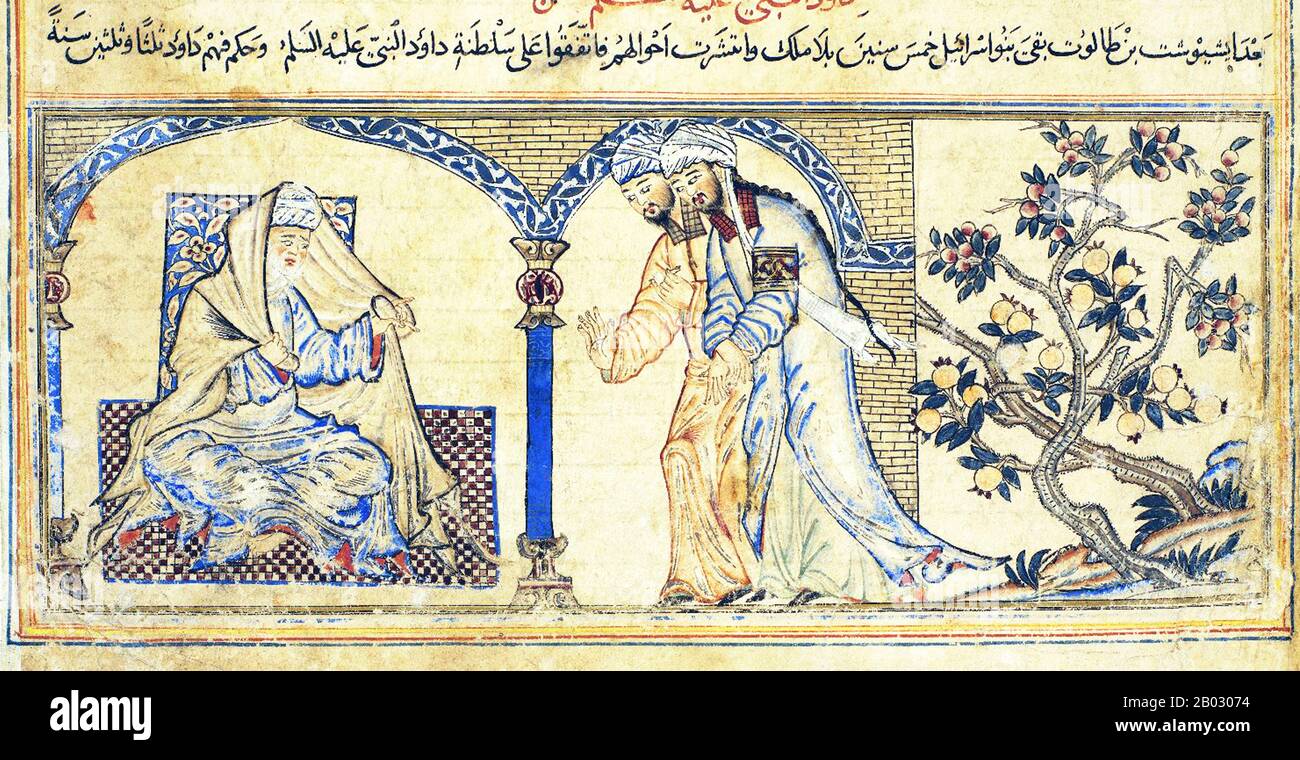 داود النبي عليه السلم
بعد ايشبوشت بن طالوت بقى بنو اسرائيل خمس سنين بلا ملك وانتشرت احوالهم فاتفقوا على سلطنة داود النبي عليه السلم وحكم فيهم داود ثلثا وثلثين سنة
a
alamy
alamy
Image ID: 2B03074
www.alamy.com